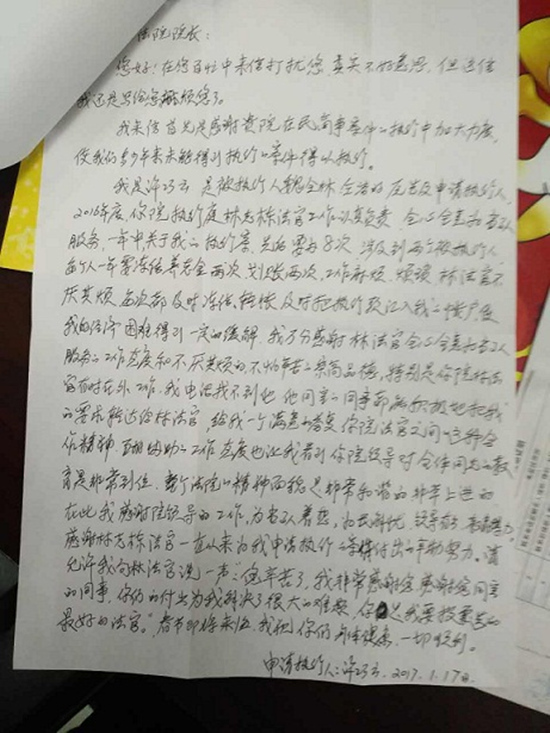 法院院长：
您好！在您百忙中来信打扰您，真实不好意思，但这信
我还是写给您麻烦您了。
我来信首先是感谢贵院在民商事案件的执行中加大力度，
使我们多少年来未能得到执行的案件得以执行。
我是许巧云 是被执行人 全林 的 申请执行人，
2016年度，你院执行庭林志栋法官工作认真负责，全心全意为当事人
服务，一年中关于我的执行案， 要与8次 涉及到两个被执行人
每个人一年要冻结 两次，划账两次，工作麻烦、烦琐，林法官不
厌其烦 每次都及时冻结、转账 及时把执行款汇入我的账户使
我的经济困难得到一定的缓解，我万分感谢林法官全心全意为当事人
服务的工作态度和不厌其烦的不怕辛苦的崇高品德，特别是你院林法
官有时在外工作，我电话找不到他 他同室的同事都能积极地把我
的要求转达给林法官，给我一个满意的答复 你院法官之间的这种合
作精神、互相协助的工作态度也让我看到你院领导对全体同志的教
育是非常到位，整个法院的精神面貌是非常和谐的非常上进的
在此我感谢院领导的工作，为当事人着想，为民解忧，领导有方
感谢林志栋法官一直以来为我申请执行的 付出的辛勤努力。请
允许我向林法官说一声："您辛苦了，我非常感谢您 感谢您同室
的同事，你们的付出为我解决了很大的难题，你是我要投票的
最好的法官。"春节即将来临，我祝你们身体健康，一切顺利。
申请执行人：许巧云，2017.1.17日